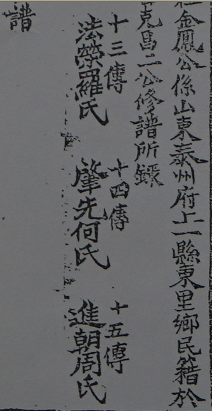 金鳳公係山東泰州府上一縣東里鄉民籍於
克昌二公修譜所錄
十三傳
法榮羅氏
十四傳
肇先何氏
十五傳
進朝周氏
譜